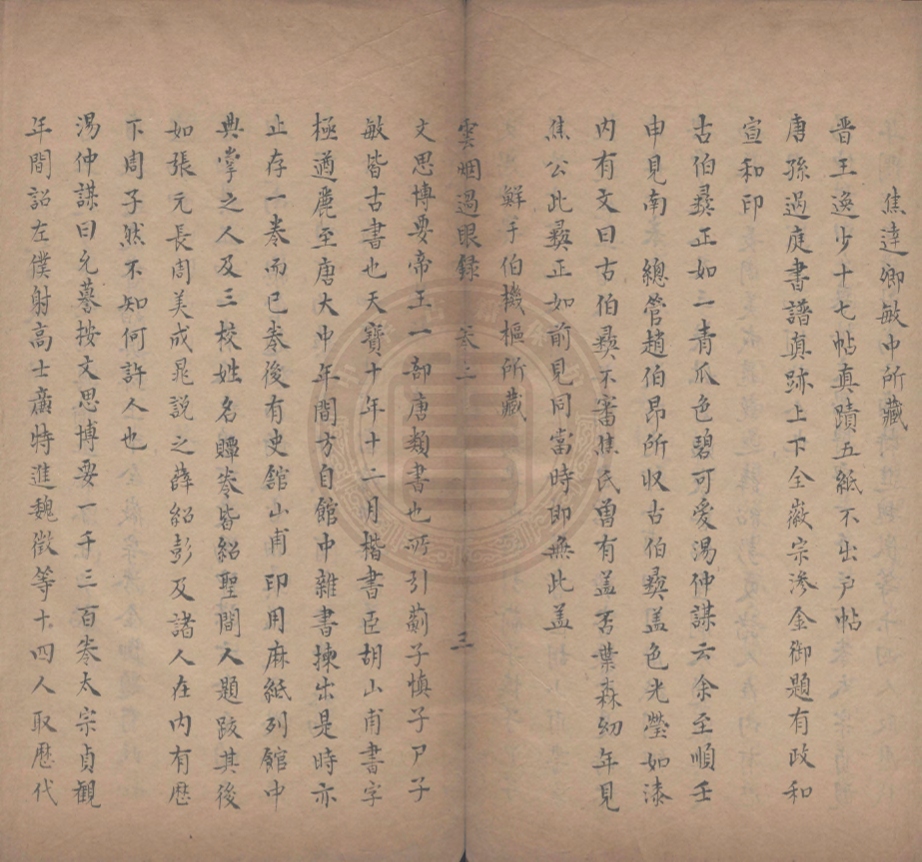 焦達卿敏中所藏
晋王逸少十七帖真蹟五紙不出户帖
唐孫過庭書譜真跡上下全徽宗滲金御題有政和
宣和印
古伯彛正如二青瓜色碧可愛湯仲謀云余至順壬
申見南 總管趙伯昂所収古伯彛盖色光瑩如漆
内有文曰古伯彛不審焦氏曽有盖否葉森幼年見
焦公此彛正如前見同當時即無此盖
鮮于伯機樞所藏
雲烟過眼録 卷二 三
文思博要帝王一部唐類書也所引蓟子慎子尸子
敏皆古書也天寳十年十二月楷書臣胡山甫書字
極遒麗至唐大中年間方自館中雜書揀出是時亦
止存一卷而已卷後有史舘山甫印用麻紙列舘中
典掌之人及三校姓名贉卷皆紹聖間人題跋其後
如張元長周美成晁説之薛紹彭及諸人在内有歴
下周子然不知何許人也
湯仲謀曰允謩按文思博要一千三百卷太宗貞觀
年間詔左僕射高士廉特進魏徴等十四人取歴代